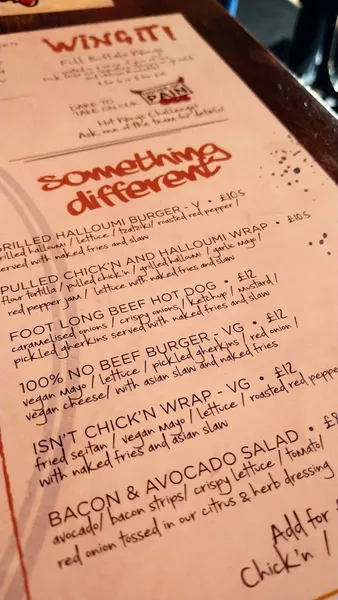 WING IT!
Full Buffalo Wings
DARE TO
TAKE ON OUR
PAIN
Hot Wings Challenge!
Ask one of the team for details!
something
different
GRILLED HALLOUMI BURGER - V • £10.5
grilled halloumi / lettuce / tzatziki / roasted red pepper /
served with naked fries and slaw
PULLED CHICK'N AND HALLOUMI WRAP • £10.5
flour tortilla / pulled chick'n / grilled halloumi / garlic mayo /
red pepper jam / lettuce with naked fries and slaw
FOOT LONG BEEF HOT DOG • £12
caramelised onions / crispy onions / ketchup / mustard /
pickled gherkins served with naked fries and slaw
100% NO BEEF BURGER - VG • £12
vegan mayo / lettuce / pickled gherkins / red onion /
vegan cheese / with asian slaw and naked fries
ISN'T CHICK'N WRAP - VG • £12
fried seitan / vegan mayo / lettuce / roasted red pepper
with naked fries and asian slaw
BACON & AVOCADO SALAD •
avocado / bacon strips / crispy lettuce / tomato /
red onion tossed in our citrus & herb dressing
Add for
Chick'n /